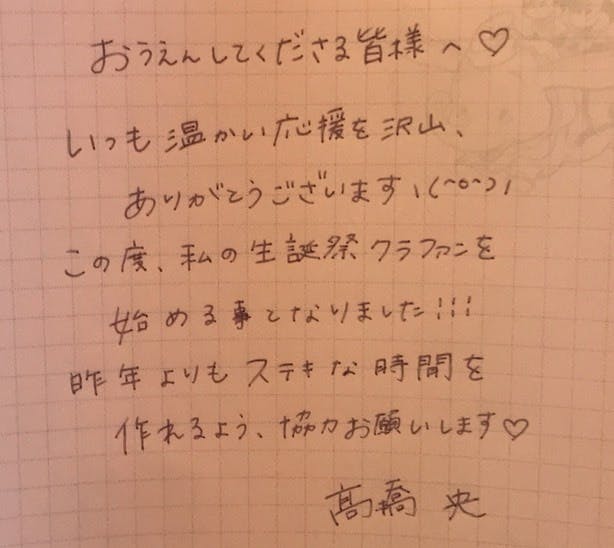 おうえんしてくださる皆様へ♡
いつも温かい応援を沢山、
ありがとうございますヽ(^o^)ノ
この度、私の生誕祭クラファンを
始める事となりました!!!
昨年よりもステキな時間を
作れるよう、協力お願いします♡
髙橋 央